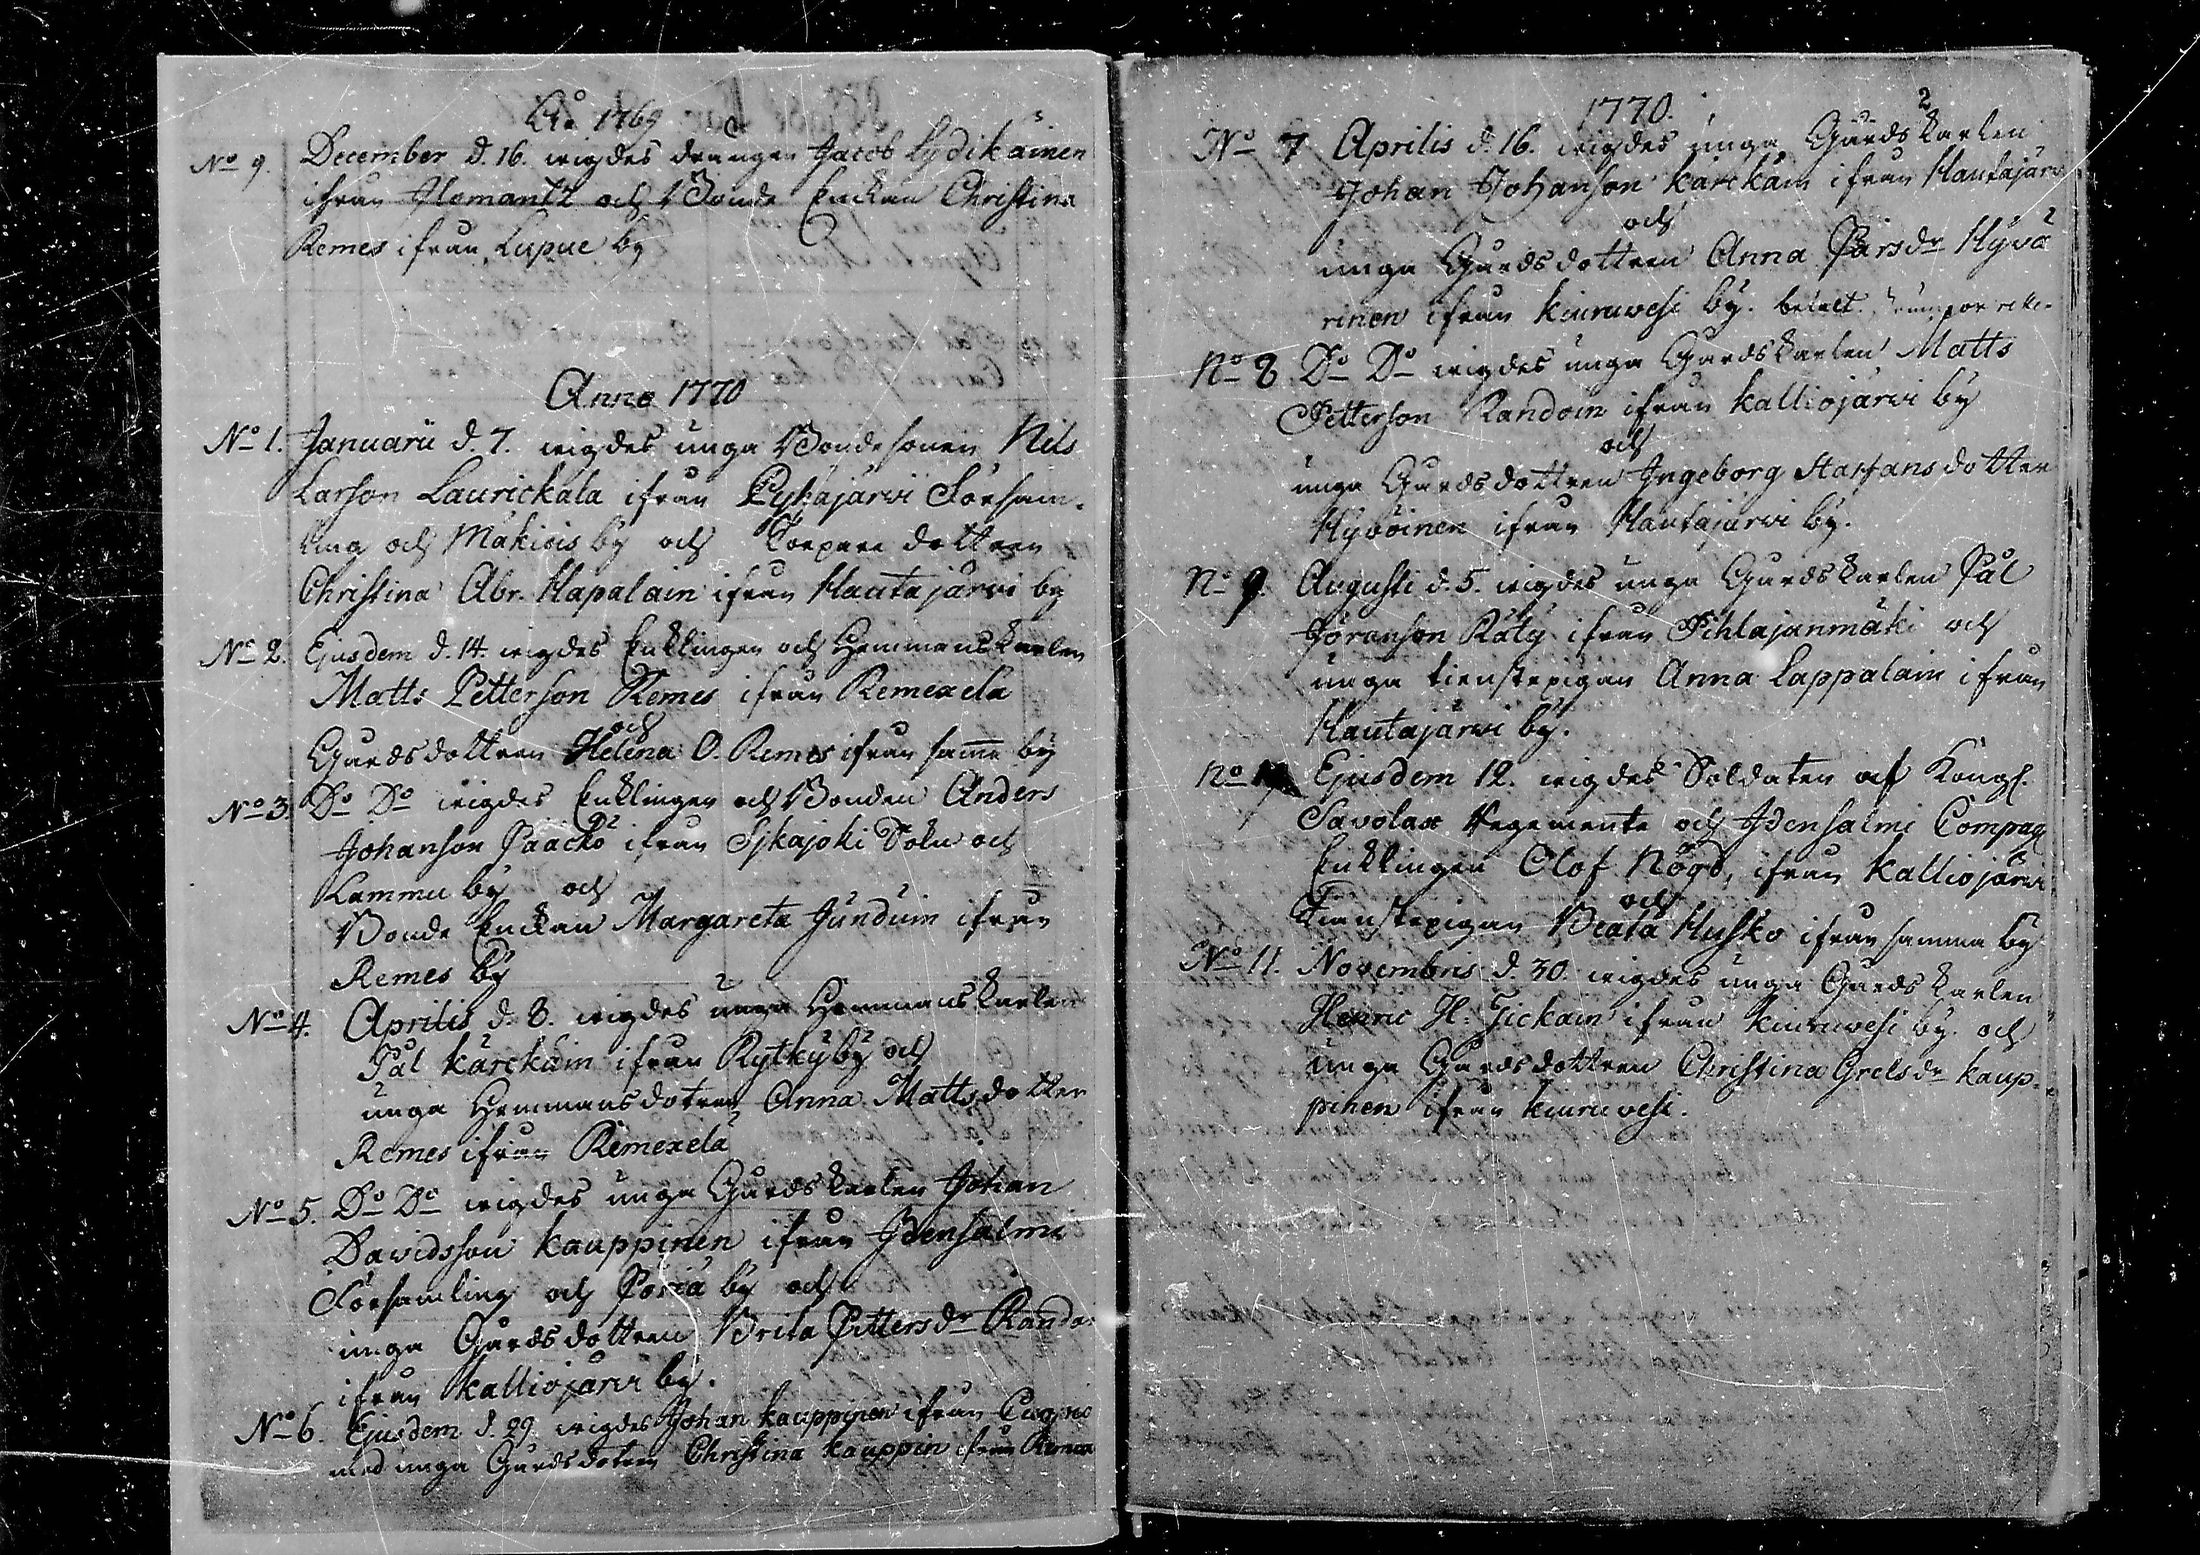 Ao 1769
No 9. December d. 16. wigdes drängen Jacob Lydikäinen
ifrån Ilomantz och Bonde Enckan Christina
Remes ifrån Lapue by
Anno 1770
No 1. Januarii d. 7. wigdes unga Bondesonen Nils
Larson Laurickala ifrån Pyhäjärvi Försam-
ling och Mäkiois by och Torpare dottren
Christina Abr. Hapalain ifrån Hautajärvi by
No 2. Ejusdem d. 14. wigdes Enklingen och Hemmanskarlen
Matts Petterson Remes ifrån Remexelä
och
Gårdsdottren Helena O. Remes ifrån samma by
No 3. Do Do wigdes Enklingen och Bonden Anders
Johanson Paacko ifrån Sjkajoki Sokn och
Lammu by och
Bonde Enckan Margareta Junduin ifrån
Remes by
No 4. Aprilis d. 8. wigdes unga Hemmanskarlen
Pål Kärckäin ifrån Rytkÿ bÿ och
unga Hemmansdotren Anna Mattsdotter
Remes ifrån Remexelä
No 5. Do Do wigdes unga Gårdskarlen Johan
Davidsson Kauppinen ifrån Idensalmi
Församling och Poria by och
unga Gårdsdottren Brita Pittersdr Rando:
ifrån Kalliojärvi by.
No 6. Ejusdem d. 29. wigdes Johan Kauppinen ifrån Cuopio
med unga Gårdsdotren Christina Kauppin ifrån
2
1770.
No 7 Aprilis d. 16. wigdes unga Gårdskarlen
Johan Johanson Kärckäin ifrån Hautajärvi
och
unga Gårdsdottren Anna Pärsdr Hyvä
rinen ifrån Kiuruwesi by. betalt.
No 8 Do Do wigdes unga Gårdskarlen Matts
Petterson Randoin ifrån Kalliojärvi by
och
unga Gårdsdottren Ingeborg Staffansdotter
Hyvöinen ifrån Hautajärvi by.
No 9. Augusti d. 5. wigdes unga Gårdskarlen Pål
Jöranson Räty ifrån Pihlajanmäki och
unga tienstepigan Anna Lappalain ifrån
Hautajärvi by.
No Ejusdem 12. wigdes Soldaten af Kongl.
Savolax Regemente och Idensalmi Compag
Enklingen Olof Nögd, ifrån Kalliojärvi
och
Tienstepigan Beata Husko ifrån samma by
No 11. Novembris d. 30. wigdes unga Gårdskarlen
Henric H: Tickain ifrån Kiuruwesi by. och
unga Gårdsdottren Christina Grelsdr Kaup-
pinen ifrån Kiuruwesi.